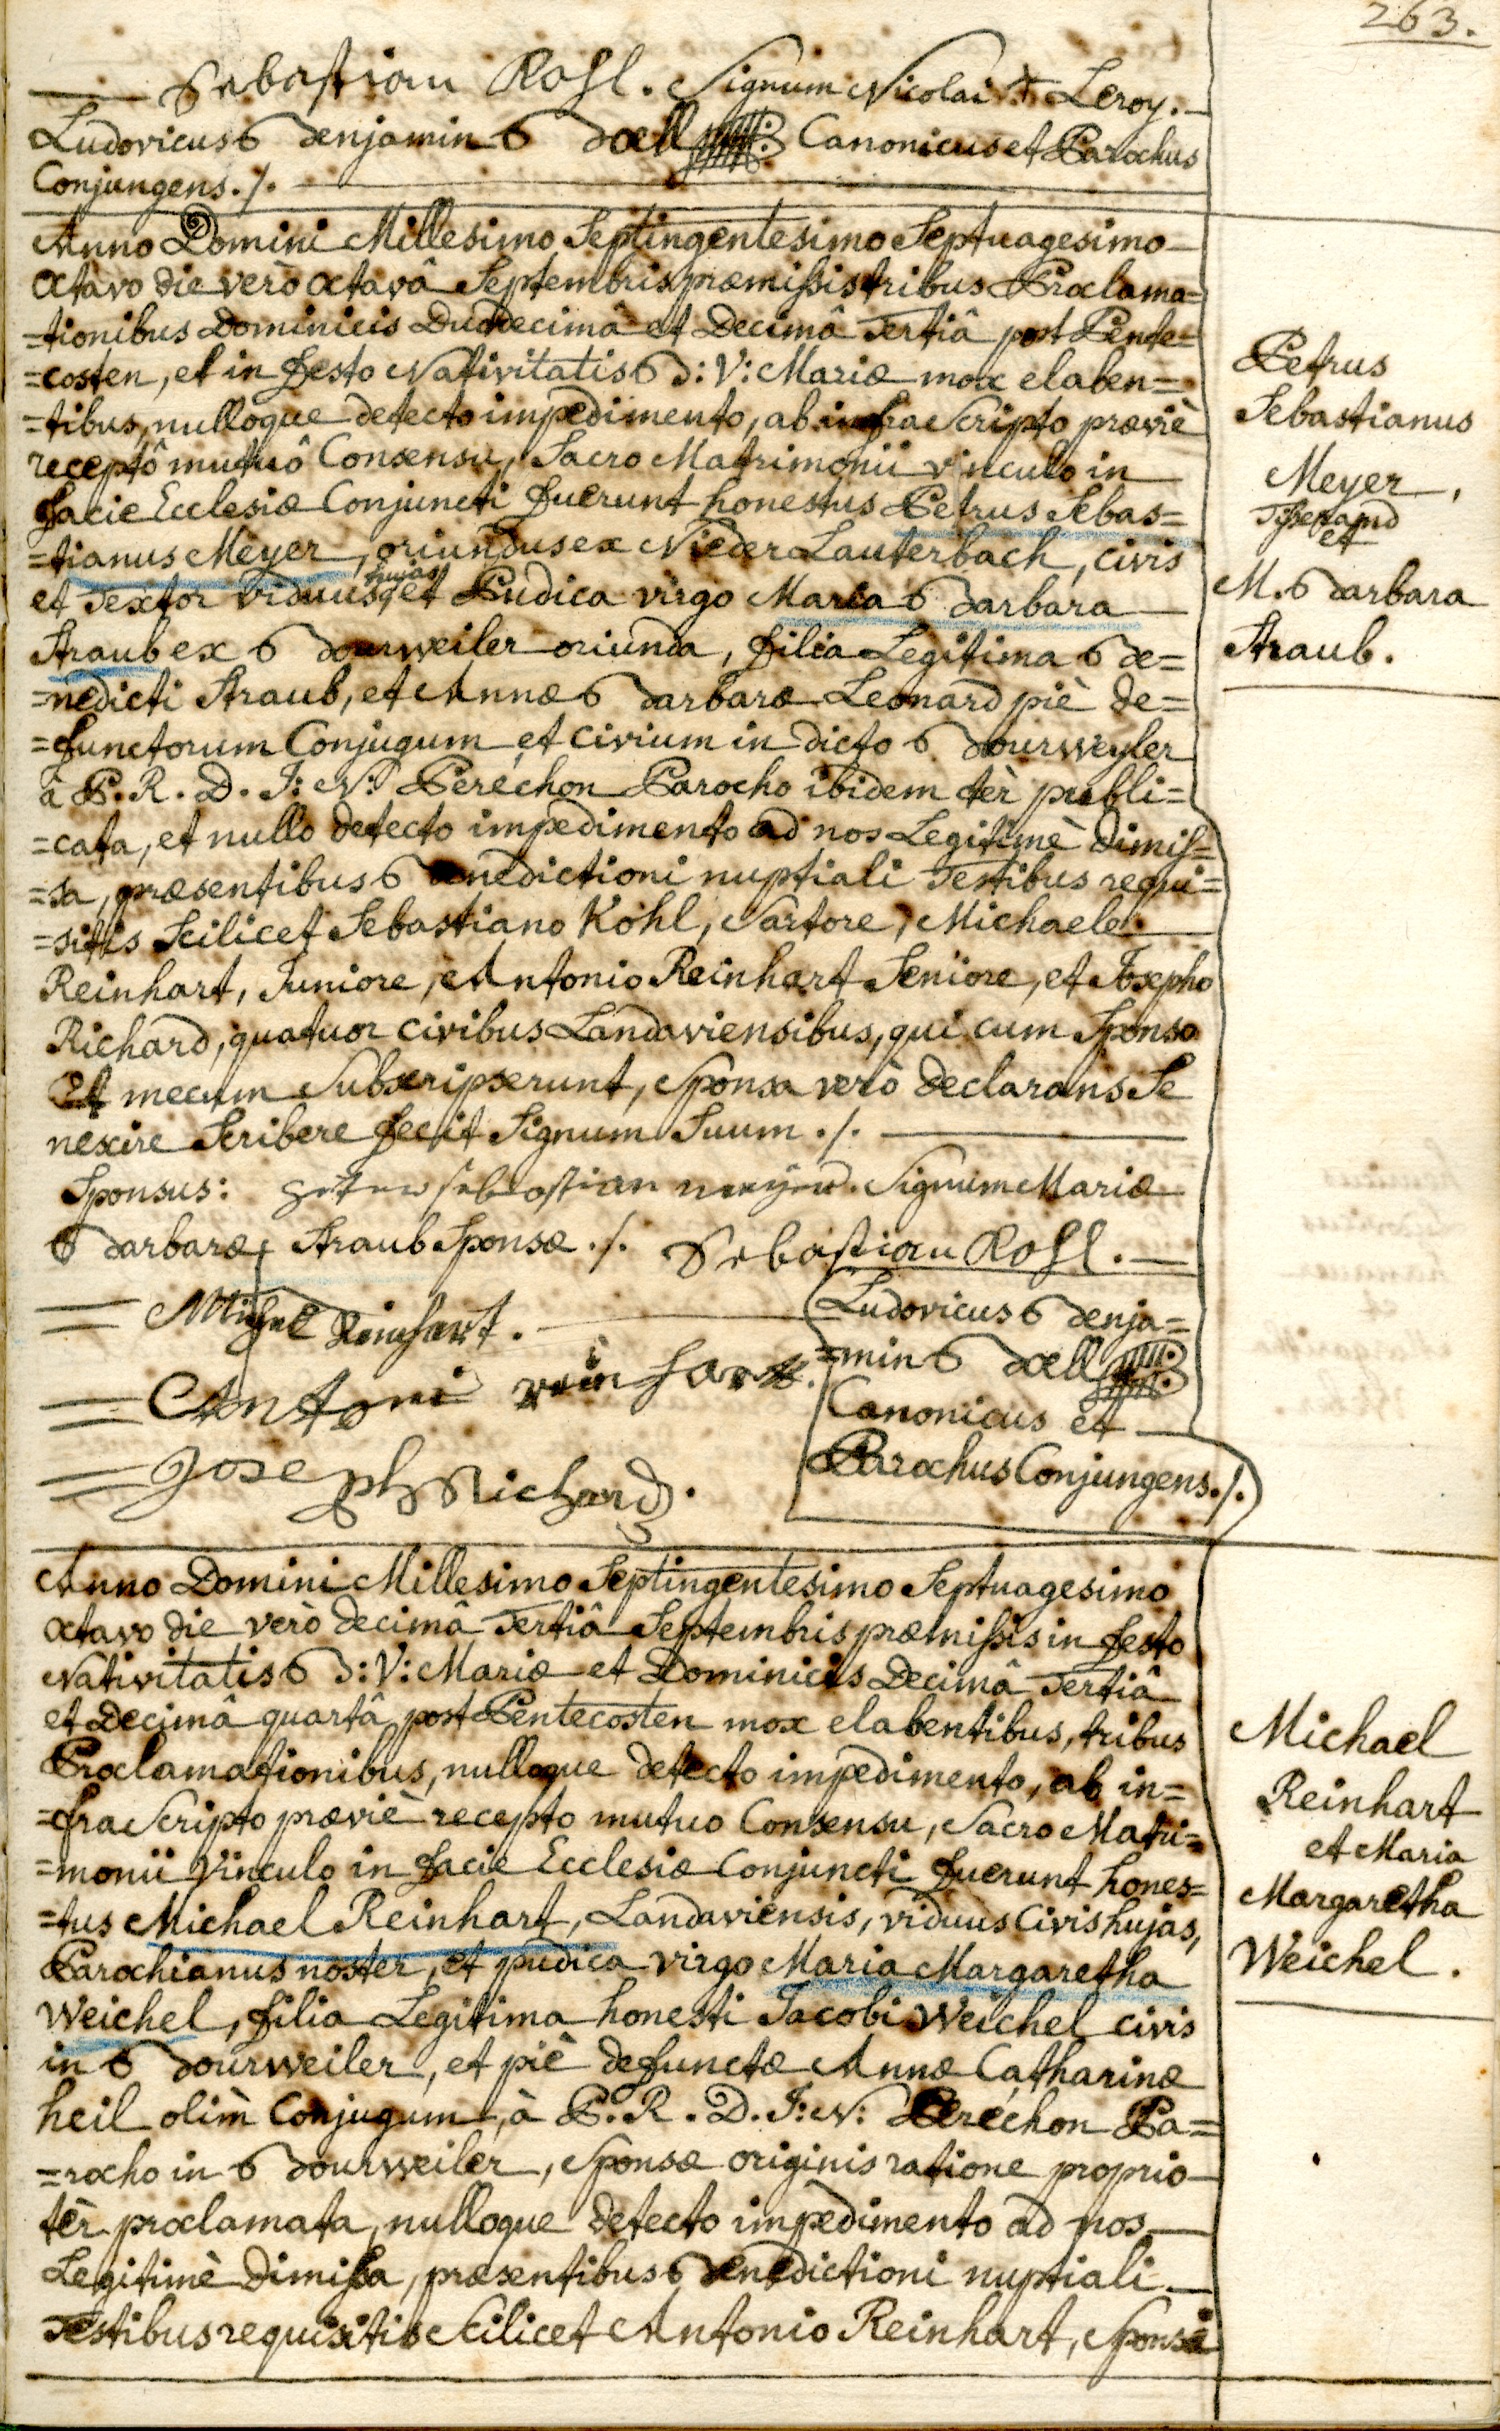 263.
Sebastian Kohl. Signum Nicolai + Leroy.
Ludovicus Benjamin Boell Canonicus et Parochus
Conjungens./.
Anno Domini Millesimo Septingentesimo Septuagesimo
octavo die verò octavâ Septembris præmissis tribus Proclama=
=tionibus Dominicis Duodecimâ et Decimâ Tertiâ post Pente=
=costen, et in festo Nativitatis B: V: Mariæ mox elaben=
=tibus, nulloque detecto impedimento, ab infra Scripto præviè
receptô mutuô Consensu, Sacro Matrimonii vinculo in
facie Ecclesiæ Conjuncti fuerunt honestus Petrus Sebas=
=tianus Meyer, oriundus ex Nieder Lauterbach, civis
hujas
et Textor viduus, et Pudica virgo Maria Barbara
Straub ex Bourweiler oriunda, filia Legitima Be=
=nedicti Straub, et Annæ Barbaræ Leonard piè de=
=functorum Conjugum et civium in dicto Bourweyler
à P. R. D. J: N: Peréchon Parocho ibidem tèr publi=
=cata, et nullo detecto impedimento ad nos Legitimè dimis=
=sa, præsentibus Benedictioni nuptiali Testibus requi=
=sitis Scilicet Sebastiano Kohl, Sartore, Michaele
Reinhart, Juniore, Antonio Reinhart Seniore, et Josepho
Richard, quatuor civibus Landaviensibus, qui cum Sponso
Et mecum Subscripserunt, Sponsa verò declarans Se
nescire Scribere fecit Signum Suum ./.
Sponsus: peter sebastian meyer. Signum Mariæ
Barbaræ + Straub Sponsæ ./. Sebastian Kohl.
Michel Reinhart.
Antoni reinhart.
Joseph Richard.
Ludovicus Benja=
=min Boell
Canonicus et
Parochus Conjungens./.
Petrus
Sebastianus
Meyer,
Tisserand
et
M. Barbara
Straub.
Anno Domini Millesimo Septingentesimo Septuagesimo
octavo die verò decimâ Tertiâ Septembris præmissis in festo
Nativitatis B: V: Mariæ et Dominicis Decimâ Tertiâ
et Decimâ quartâ post Pentecosten mox elabentibus, tribus
Proclamationibus, nulloque detecto impedimento, ab in=
=fra Scripto præviè recepto mutuo Consensu, Sacro Matri=
=monii Vinculo in facie Ecclesiæ Conjuncti fuerunt hones=
=tus Michael Reinhart, Landaviensis, viduus Civis hujas,
Parochianus noster, et pudica virgo Maria Margaretha
Weichel, filia Legitima honesti Jacobi Weichel civis
in Bourweiler, et piè defunctæ Annæ Catharinæ
heil olim Conjugum, à P. R. D. J: N: Peréchon Pa=
=rocho in Bourweiler, Sponsæ originis ratione proprio
tèr proclamata, nulloque detecto impedimento ad nos
Legitimè Dimissa, præsentibus Benedictioni nuptiali
Testibus requisitis Scilicet Antonio Reinhart, Sponsi
Michael
Reinhart
et Maria
Margaretha
Weichel.